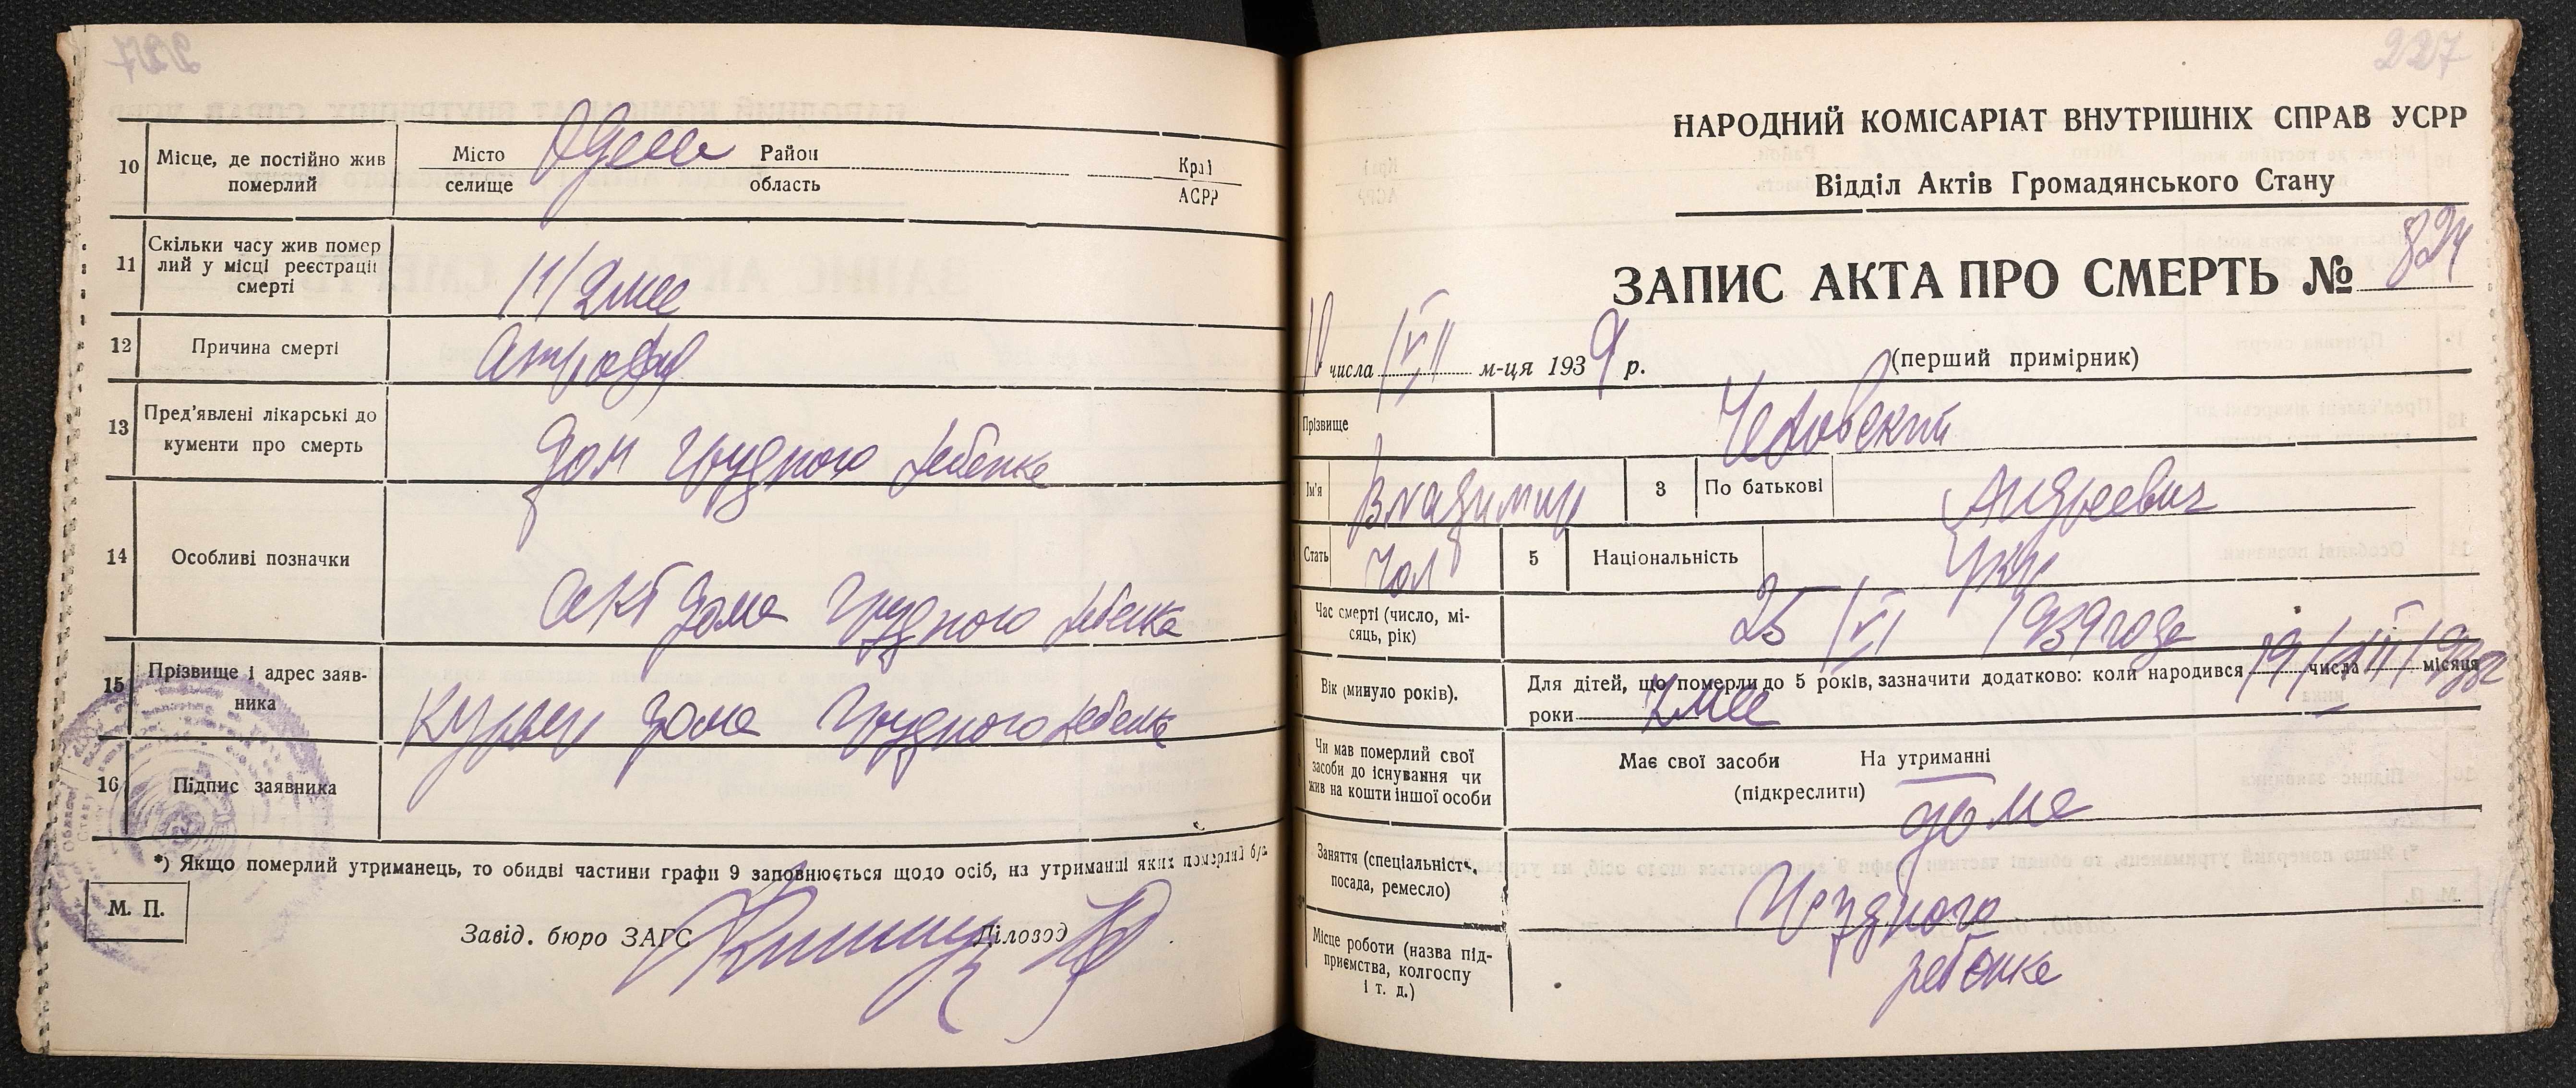 227
10
Місце, де постійно жив
померлий
Місто
селище
Одесса
Район
область
Краї
АСРР
11
Скільки часу жив помер
лий у місці реєстрації
смерті
1 1/2 мес
12
Причина смерті
Атрофия
13
Пред'явлені лікарські до
кументи про смерть
Дом грудного ребенка
14
Особливі позначки
Акт дома грудного ребенка
15
Прізвище і адрес заяв-
ника
Курьер дома грудного ребенка
16
Підпис заявника
*) Якщо померлий утриманець, то обидві частини графи 9 заповнюється щодо осіб, на утриманні яких померлий був
М. П.
Завід. бюро ЗАГС
Діловод
227
НАРОДНИЙ КОМІСАРІАТ ВНУТРІШНІХ СПРАВ УСРР
Відділ Актів Громадянського Стану
ЗАПИС АКТА ПРО СМЕРТЬ № 824
10 числа VII м-ця 1939 р.
(перший примірник)
Прізвище
Ім'я
Владимир
3
По батькові
Андреевич
Стать
Чол
5
Національність
Укр
Час смерті (число, мі-
сяць, рік)
25/VI 1939 года
Вік (минуло років).
Для дітей, що померли до 5 років, зазначити додатково: коли народився 19 числа місяця
роки
7 мес
Чи мав померлий свої
засоби до існування чи
жив на кошти іншої особи
Має свої засоби
На утриманні
(підкреслити)
доме
Заняття (спеціальність,
посада, ремесло)
грудного
Місце роботи (назва під-
приємства, колгоспу
і т. д.)
ребенка